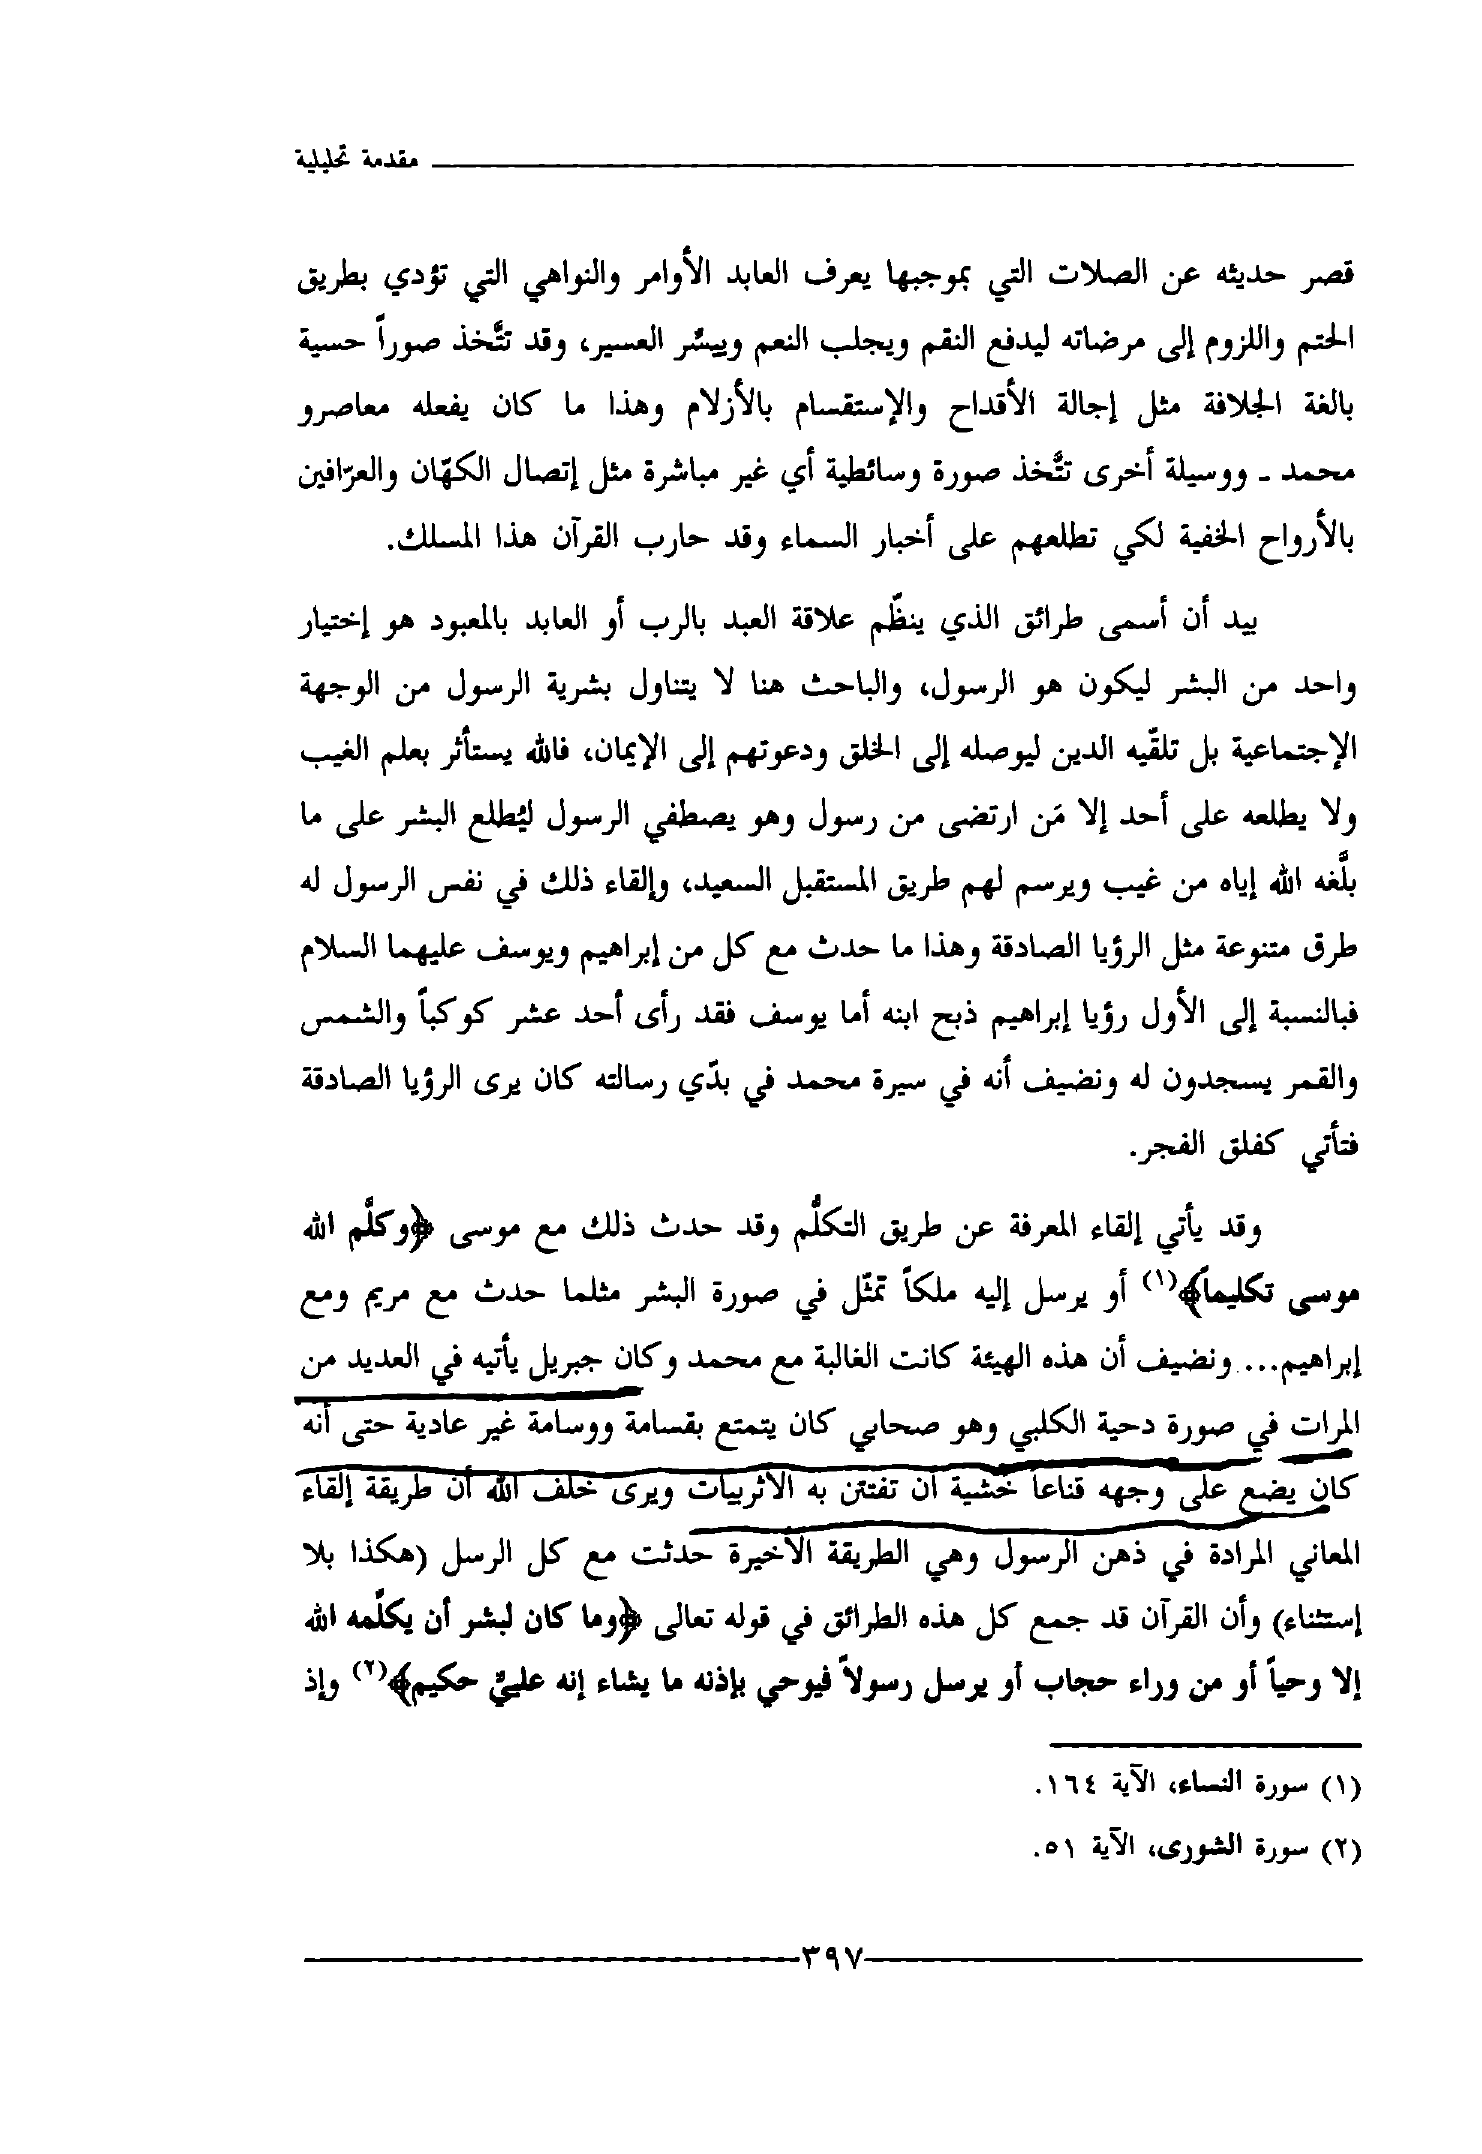 مقدمة تحليلية
قصر حديثه عن الصلات التي بموجبها يعرف العابد الأوامر والنواهي التي تؤدي بطريق
الحتم واللزوم إلى مرضاته ليدفع النقم ويجلب النعم وييسِّر العسير، وقد تتَّخذ صوراً حسية
بالغة الجلافة مثل إجالة الأقداح والإستقسام بالأزلام وهذا ما كان يفعله معاصرو
محمد ـ ووسيلة أخرى تتَّخذ صورة وسائطية أي غير مباشرة مثل إتصال الكهّان والعرّافين
بالأرواح الخفية لكي تطلعهم على أخبار السماء وقد حارب القرآن هذا المسلك.
بيد أن أسمى طرائق الذي ينظّم علاقة العبد بالرب أو العابد بالمعبود هو إختيار
واحد من البشر ليكون هو الرسول، والباحث هنا لا يتناول بشرية الرسول من الوجهة
الإجتماعية بل تلقّيه الدين ليوصله إلى الخلق ودعوتهم إلى الإيمان، فالله يستأثر بعلم الغيب
ولا يطلعه على أحد إلا مَن ارتضى من رسول وهو يصطفي الرسول ليُطلع البشر على ما
بلَّغه الله إياه من غيب ويرسم لهم طريق المستقبل السعيد، وإلقاء ذلك في نفس الرسول له
طرق متنوعة مثل الرؤيا الصادقة وهذا ما حدث مع كل من إبراهيم ويوسف عليهما السلام
فبالنسبة إلى الأول رؤيا إبراهيم ذبح ابنه أما يوسف فقد رأى أحد عشر كوكباً والشمس
والقمر يسجدون له ونضيف أنه في سيرة محمد في بدّي رسالته كان يرى الرؤيا الصادقة
فتأتي كفلق الفجر.
وقد يأتي إلقاء المعرفة عن طريق التكلُّم وقد حدث ذلك مع موسى ﴿وكلَّم الله
موسى تكليماً﴾(١) أو يرسل إليه ملكاً تمثّل في صورة البشر مثلما حدث مع مريم ومع
إبراهيم... ونضيف أن هذه الهيئة كانت الغالبة مع محمد وكان جبريل يأتيه في العديد من
المرات في صورة دحية الكلبي وهو صحابي كان يتمتع بقسامة ووسامة غير عادية حتى أنه
كان يضع على وجهه قناعاً خشية أن تفتتن به الأثربيات ويرى خلف الله أن طريقة إلقاء
المعاني المرادة في ذهن الرسول وهي الطريقة الأخيرة حدثت مع كل الرسل (هكذا بلا
إستثناء) وأن القرآن قد جمع كل هذه الطرائق في قوله تعالى ﴿وما كان لبشر أن يكلّمه الله
إلا وحياً أو من وراء حجاب أو يرسل رسولاً فيوحي بإذنه ما يشاء إنه عليٌّ حكيم﴾(٢) وإذ
(١) سورة النساء، الآية ١٦٤.
(٢) سورة الشورى، الآية ٥١.
٣٩٧